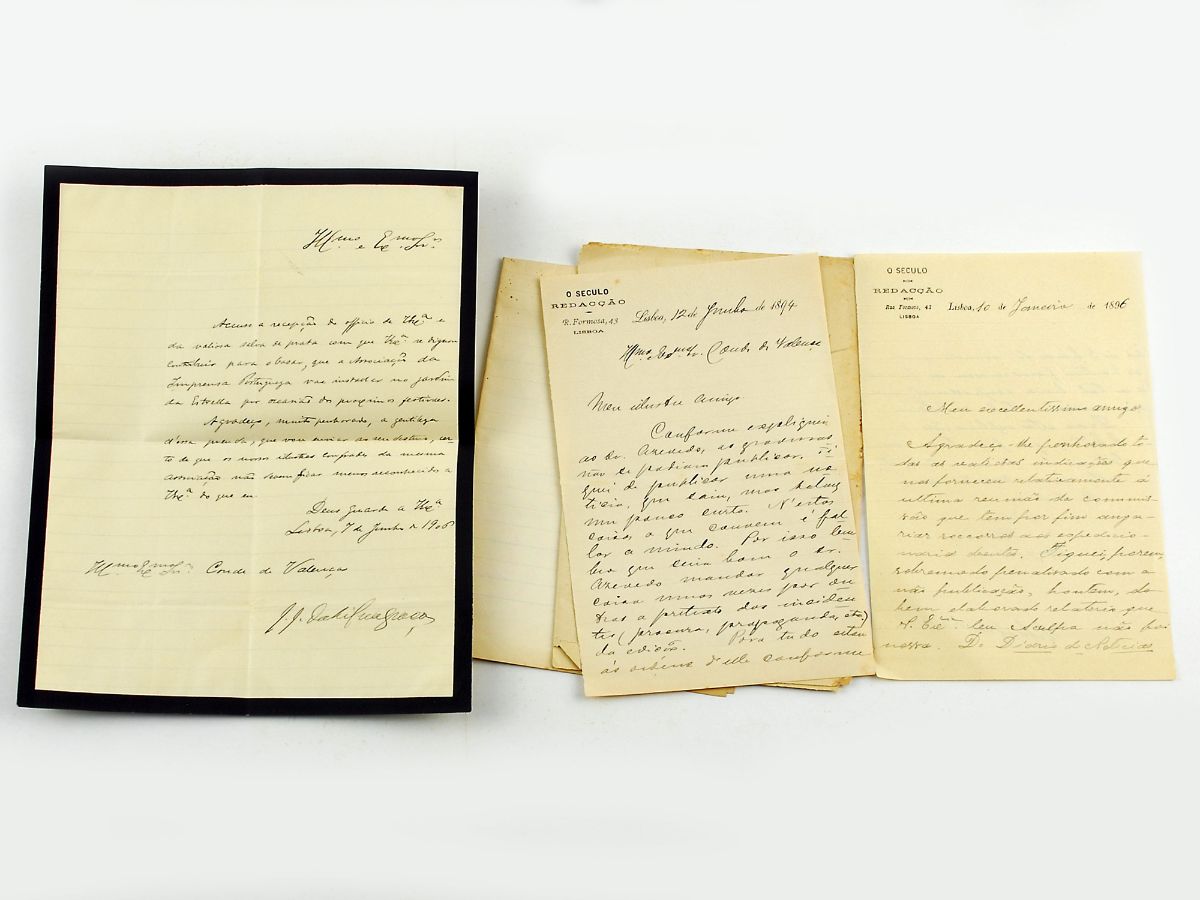 Ill.mo e Ex.mo Sr.
Accuso a recepção do officio de V. Ex.ª e
da valiosa salva de prata com que V. Ex.ª se dignou
contribuir para o bazar, que a Associação da
Imprensa Portugueza vae installar no jardim
da Estrella por occasião dos proximos festivaes.
Agradeço, muito penhorado, a gentileza
d'essa prenda, que vou enviar ao seu destino, cer-
to de que os nossos illustres confrades da mesma
associação não ficam menos reconhecidos a
V. Ex.ª do que eu.
Deus Guarde a V. Ex.ª
Lisboa, 7 de Junho de 1906
Ill.mo e Ex.mo Sr. Conde de Valenças
O SECULO
REDACÇÃO
R. Formosa, 43
LISBOA
Lisboa, 12 de Junho de 1894
Ill.mo Ex.mo Sr. Conde de Valenças
Meu illustre amigo
Conforme expliquei
ao Dr. Azevedo, as gravuras
não se podiam publicar. Fi-
quei de publicar uma no-
ticia, que saiu, mas
um pouco curta. N'estas
coisas, o que convem é fal-
lar a miudo. Por isso lem-
bro que seria bom o sr.
Azevedo mandar qualquer
coisa umas vezes por ou-
tras a pretexto dos inciden-
tes (procura, propaganda, etc.)
da edição. Para tudo estou
ás ordens d'elle conforme
O SECULO
REDACÇÃO
Rua Formosa, 43
LISBOA
Lisboa, 10 de Janeiro de 1896
Meu excellentissimo amigo
Agradeço-lhe penhorado to-
das as valiosas indicações que
nos forneceu relativamente á
ultima reunião da commis-
são que tem por fim anga-
riar soccorros aos expedicio-
narios doentes. Fiquei, porem,
sobremodo penalisado com a
não publicação, hontem, do
bem elaborado relatorio que
V. Ex.ª leu. A culpa não foi
nossa. Do Diario de Noticias